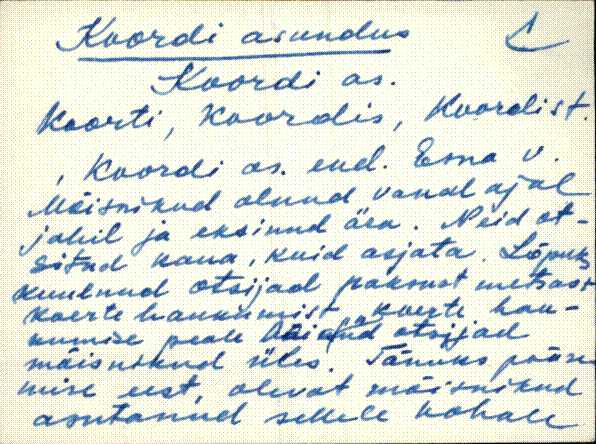 Koordi asundus
Koordi as.
Koorti, Koordis, Koordist.
, Koordi as. end. Esna v.
Mõisnikud olnud vanal ajal
jahil ja eksinud ära. Neid ot-
situd kaua, kuid asjata. Lõpuks
kuulnud otsijad paksust metsast
koerte haukumist, koerte hau-
kumise peale leidnud otsijad
mõisnikud üles. Tänuks pääse-
mise eest, olevat mõisnikud
asutanud sellele kohale